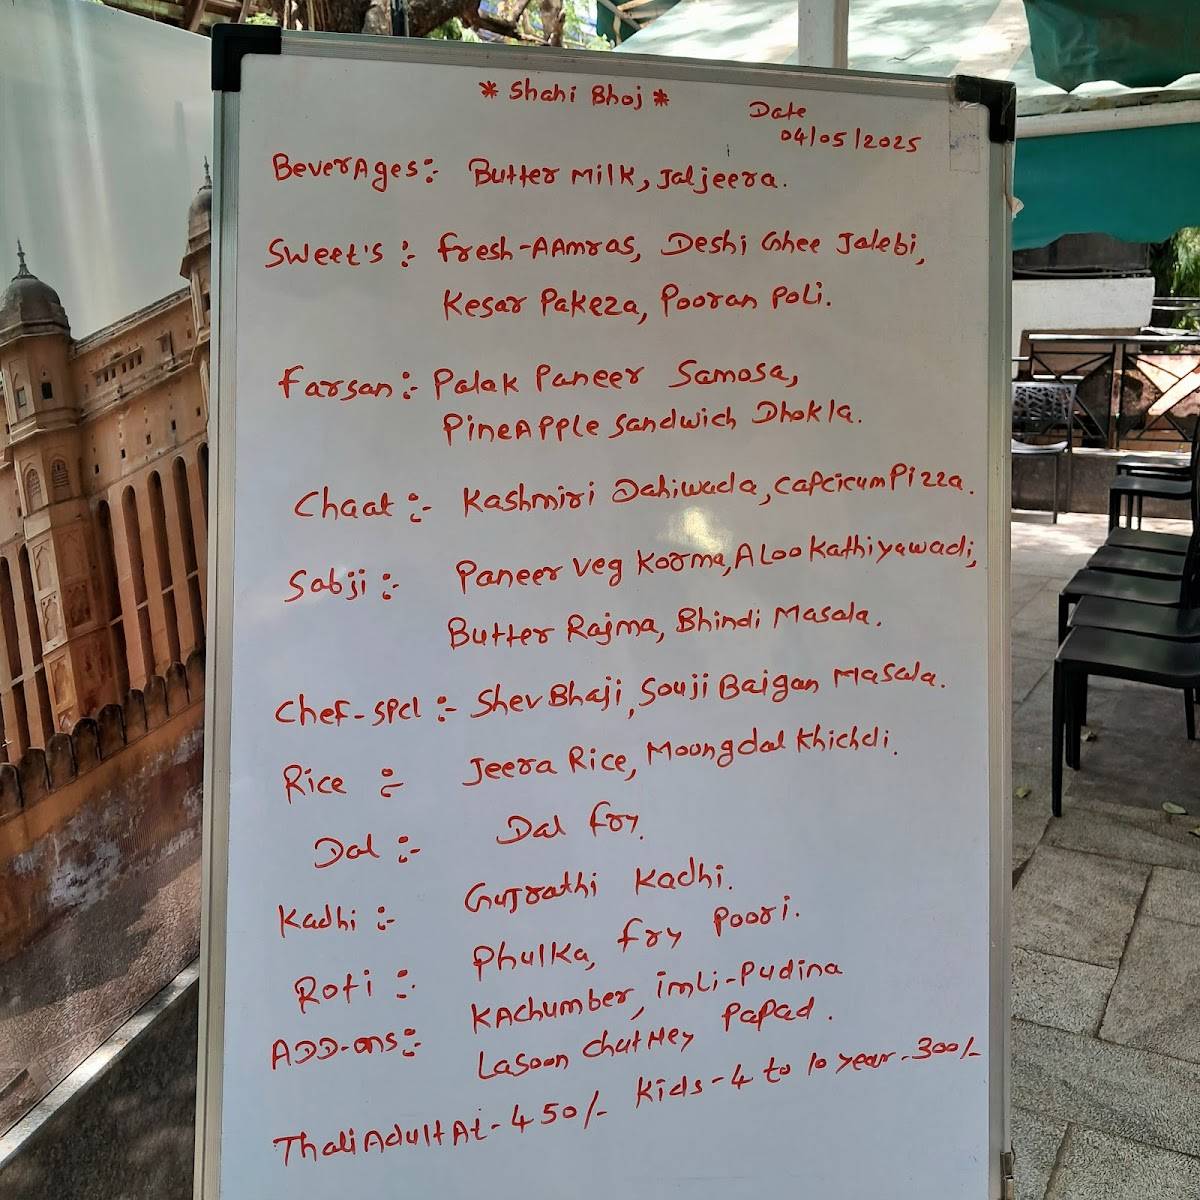 * Shahi Bhoj *
Date
04/05/2025
BeverAges:- Butter Milk, Jaljeera.
Sweet's :- Fresh-AAmras, Deshi Ghee Jalebi,
Kesar Pakeza, Pooran Poli.
Farsan :- Palak Paneer Samosa,
PineApple Sandwich Dhokla.
Chaat :- Kashmiri Dahiwada, CapcicumPizza.
Sabji :- Paneer Veg Korma, ALoo Kathiyawadi,
Butter Rajma, Bhindi Masala.
Chef-spcl :- Shev Bhaji, Souji Baigan Masala.
Rice :- Jeera Rice, Moongdal Khichdi.
Dal :- Dal fry.
Kadhi :- Gujrathi Kadhi.
Roti :- Phulka, fry Poori.
ADD-ons :- KAchumber, imli-Pudina
Lasoon Chutney Papad.
Thali Adult At - 450/- Kids - 4 to 10 year - 300/-